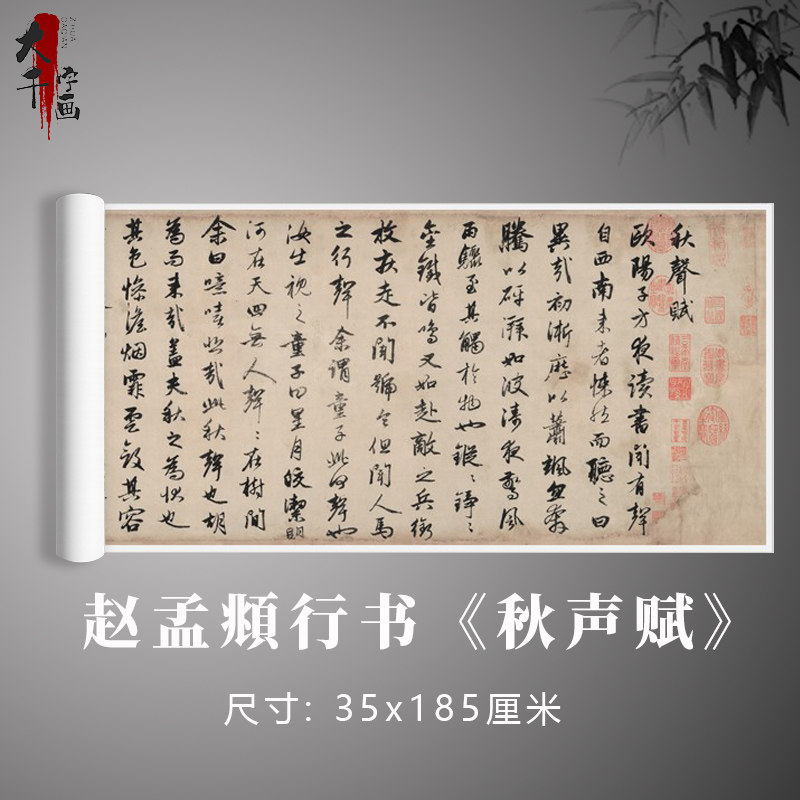 大千
字画
ZIHUA
DAQIAN
秋聲賦
歐陽子方夜讀書聞有聲
自西南来者悚然而聽之曰
異哉初淅瀝以蕭颯忽奔
騰以砰湃如波濤夜驚風
雨驟至其觸於物也鏦〻錚〻
金鐵皆鳴又如赴敵之兵銜
枚疾走不聞號令但聞人馬
之行聲余謂童子此何聲也
汝出視之童子曰星月皎潔明
河在天四無人聲〻在樹間
余曰噫嘻悲哉此秋聲也胡
為而来哉蓋夫秋之為狀也
其色慘澹烟霏雲斂其容
赵孟頫行书《秋声赋》
尺寸: 35x185厘米